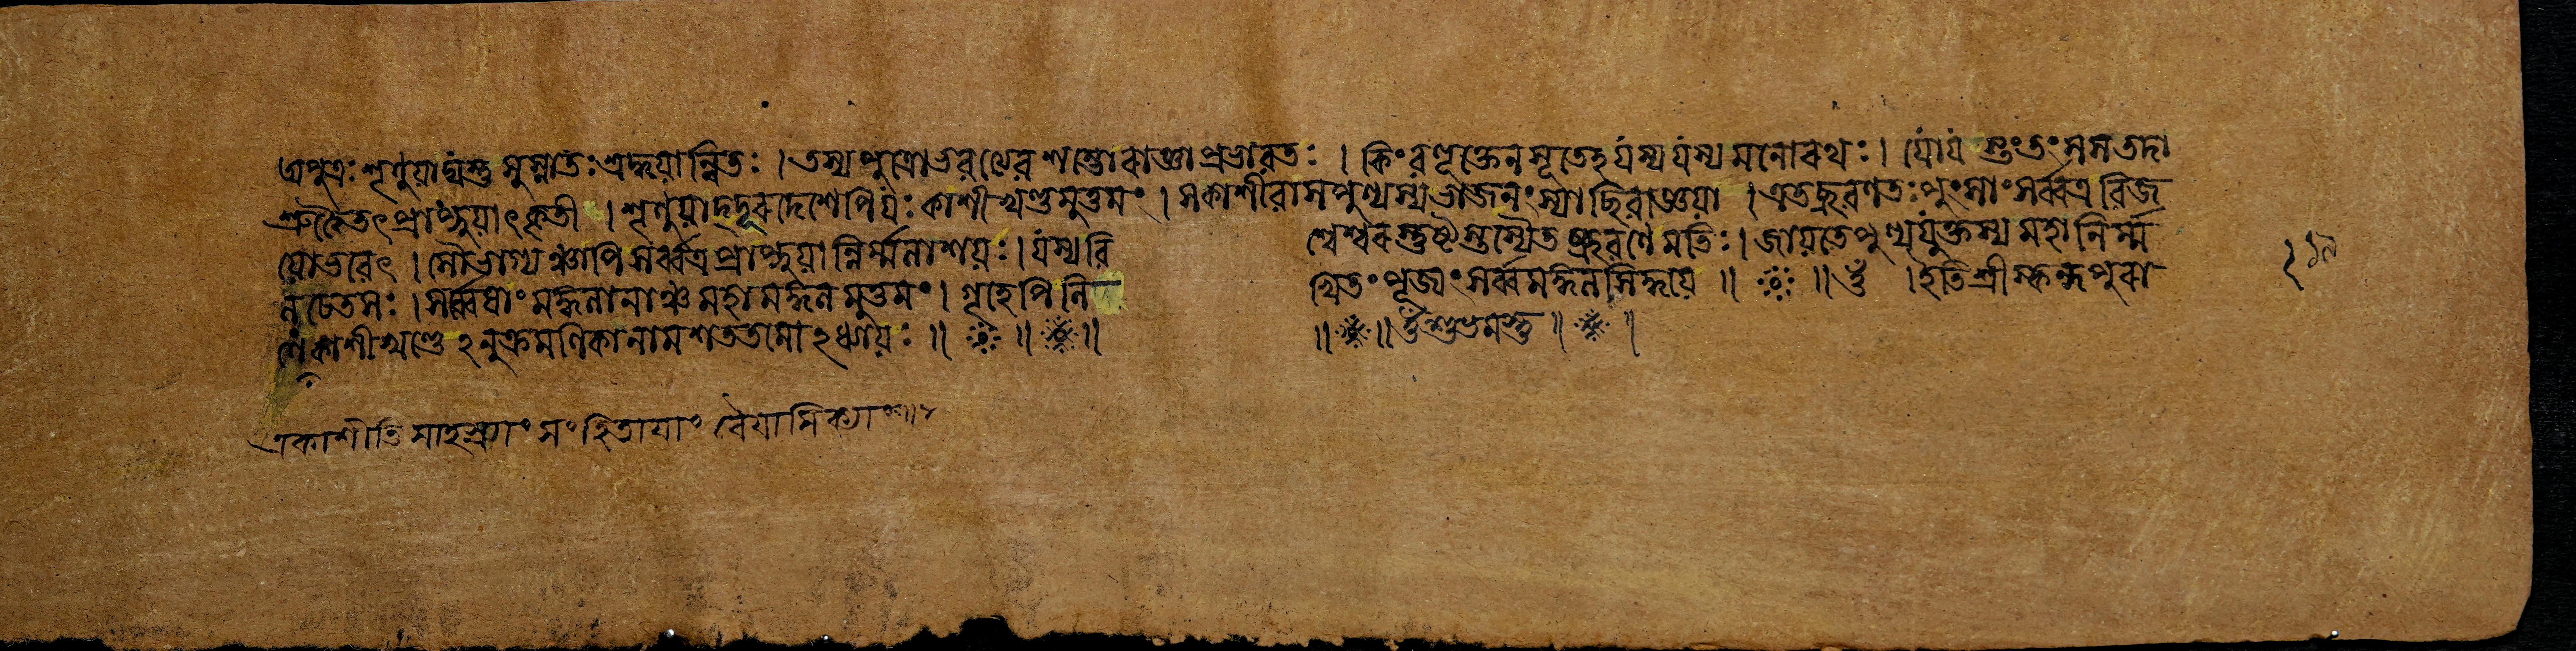 অপুত্রঃ শৃণুয়াদ্যস্তু সুস্নাতঃ শ্রদ্ধয়ান্বিতঃ । তস্য পুত্রো ভবেদেব শম্ভোরাজ্ঞাপ্রভাবতঃ । কিং বহূক্তেন সূতেহ যস্য যস্য মনোরথঃ ।
শ্রুত্বৈতৎ প্রাপ্নুয়াৎ কৃতী । শৃণুয়াদ্দূরদেশেপি যঃ কাশীখণ্ডমুত্তমং । স কাশীবাসপুণ্যস্য ভাজনং স্যাচ্ছিবাজ্ঞয়া । এতচ্ছ্রবণতঃ পুংসাং সর্ব্বত্র বিজ
য়ো ভবেৎ । সৌভাগ্যঞ্চাপি সর্ব্বত্র প্রাপ্নুয়ান্নির্ম্মলাশয়ঃ । যস্য বিশ্বেশ্বরস্তুষ্টস্তস্যৈতচ্ছ্রবণে মতিঃ । জায়তে পুণ্যযুক্তস্য মহানির্ম্ম
লচেতসঃ । সর্ব্বেষাং মঙ্গলানাঞ্চ মহামঙ্গলমুত্তমং । গৃহেপি লিখিতং পূজ্যং সর্ব্বমঙ্গলসিদ্ধয়ে ॥ ॥ ওঁ । ইতি শ্রীস্কন্দপুরা
ণে কাশীখণ্ডে ঽনুক্রমণিকানাম শততমোঽধ্যায়ঃ ॥ ॥ ॥ ॥ ॥ ওঁ শুভমস্তু ॥ ॥
একাশীতিসাহস্র্যাং সংহিতাযাং বৈযাসিক্যাং